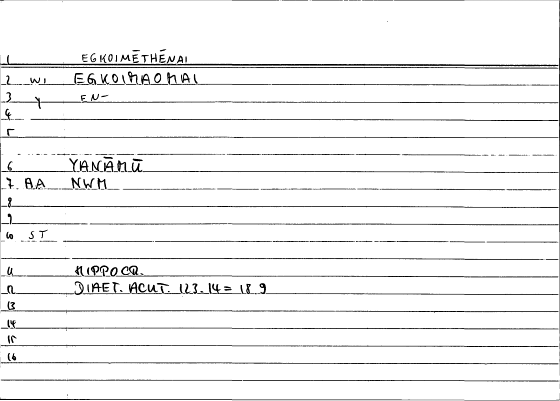 1 EGKOIMĒTHĒNAI
2 WI EGKOIMAOMAI
3 Y EN-
4
5
6 YANĀMŪ
7 AA NWM
8
9
10 ST
11 HIPPOCR.
12 DIAET. ACUT. 123.14 = 18.9
13
14
15
16